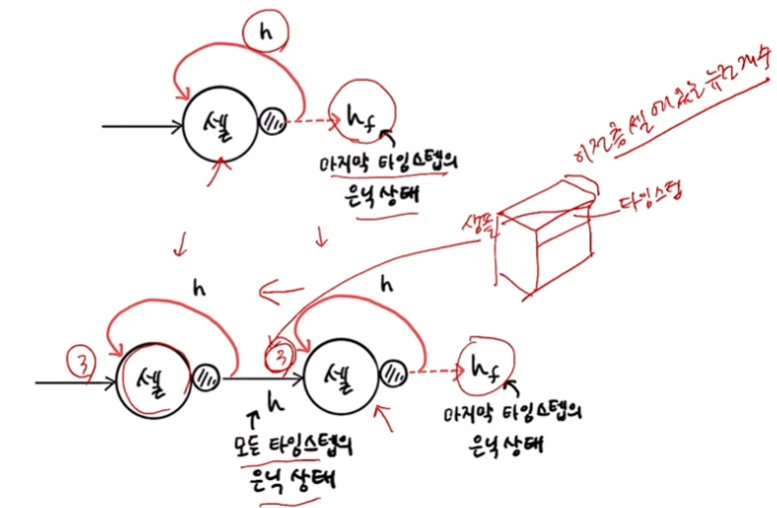 h
셀
h_f
마지막 타임스텝의
은닉 상태
이전층 셀에 있는 뉴런 개수
샘플
타임스텝
h
h
3
셀
3
셀
h_f
h
모든 타임스텝의
은닉 상태
마지막 타임스텝의
은닉 상태